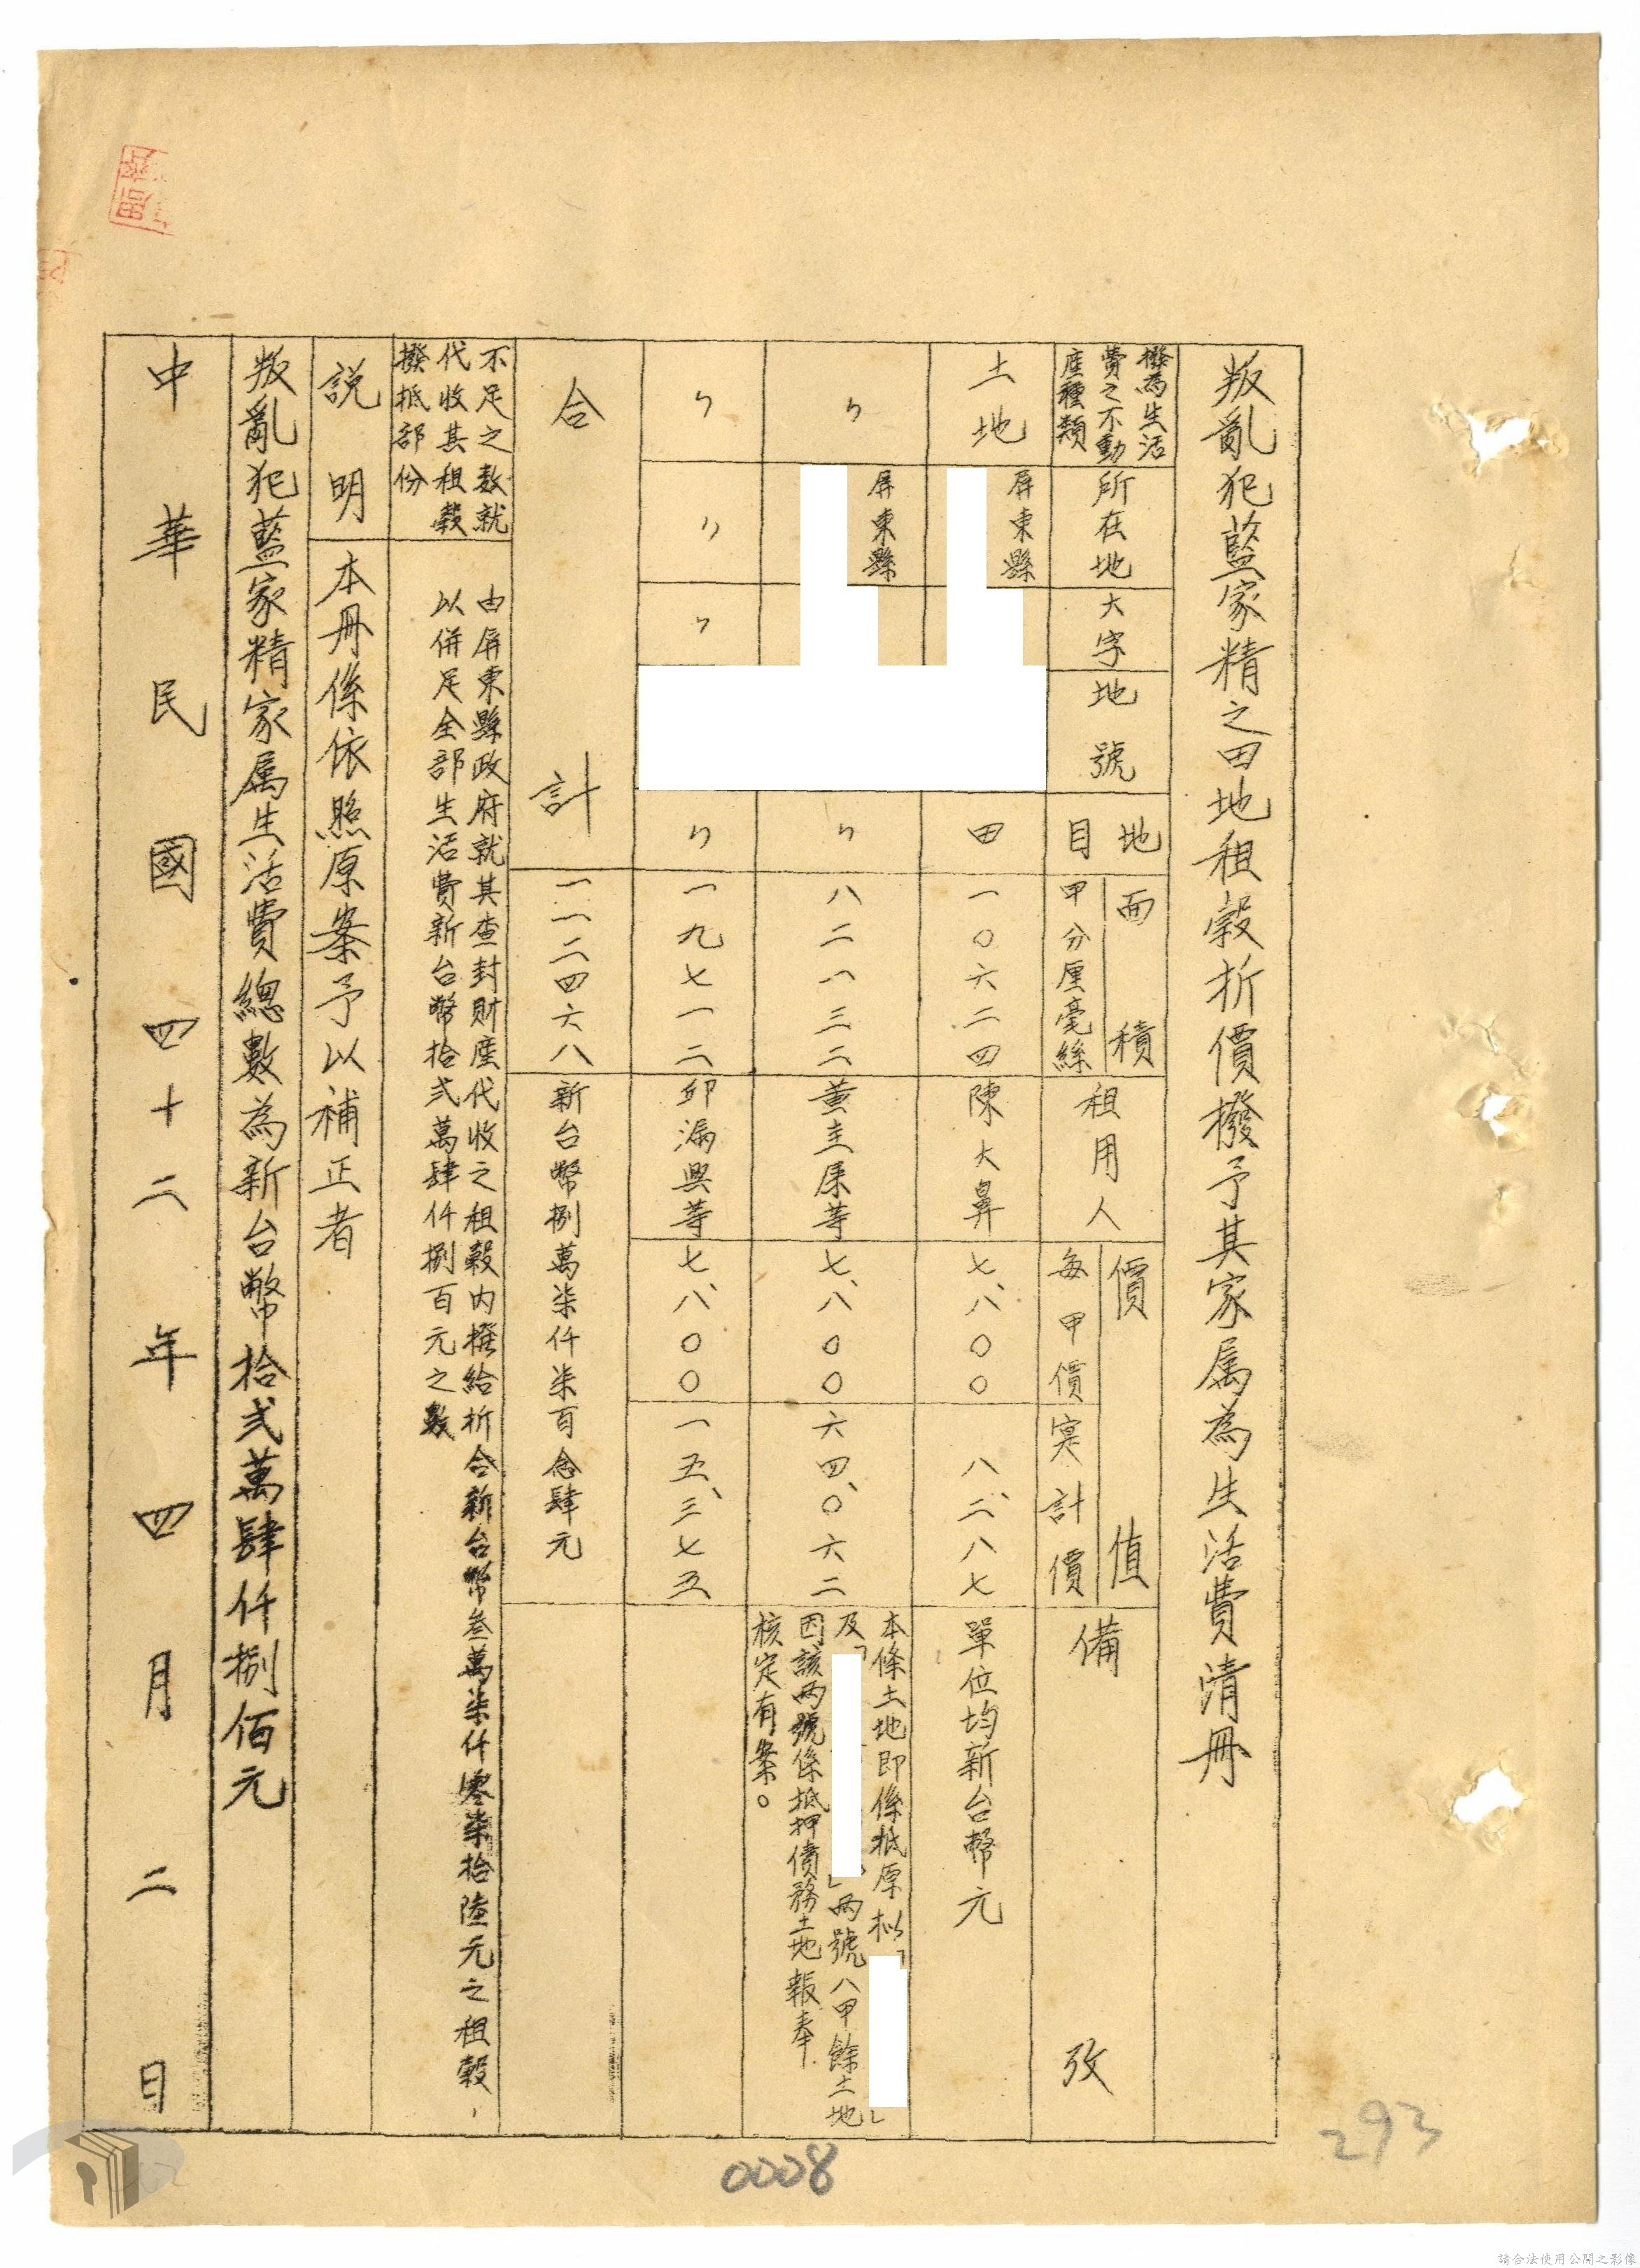 叛亂犯藍家精之田地租穀折價撥予其家属為生活費清冊
撥為生活費之不動產種類
所在地
大字
地號
地目
面積
甲分厘毫絲
租用人
價值
每甲價
實計價
備攷
土地
屏東縣
田
一〇六二四
陳大鼻
七、八〇〇
八、二八七
單位均新台幣元
〃
屏東縣
〃
八二一三二
董主屘等
七、八〇〇
六四、〇六二
本條土地即係抵原拟「
」及「
」兩號八甲餘土地
因該兩號係抵押債務土地報奉
核定有案。
〃
〃
〃
〃
一九七一二
邱漏興等
七、八〇〇
一五、三七五
合計
一一二四六八
新台幣捌萬柒仟柒百念肆元
不足之数就
代收其租穀
撥抵部份
由屏東縣政府就其查封財產代收之租穀內撥給折合新台幣叁萬柒仟零柒拾陸元之租穀、
以併足全部生活費新台幣拾弍萬肆仟捌百元之數
說明
本冊係依照原案予以補正者
叛亂犯藍家精家属生活費總數為新台幣拾弍萬肆仟捌佰元
中華民國四十二年四月二日
293
0008
請合法使用公開之影像